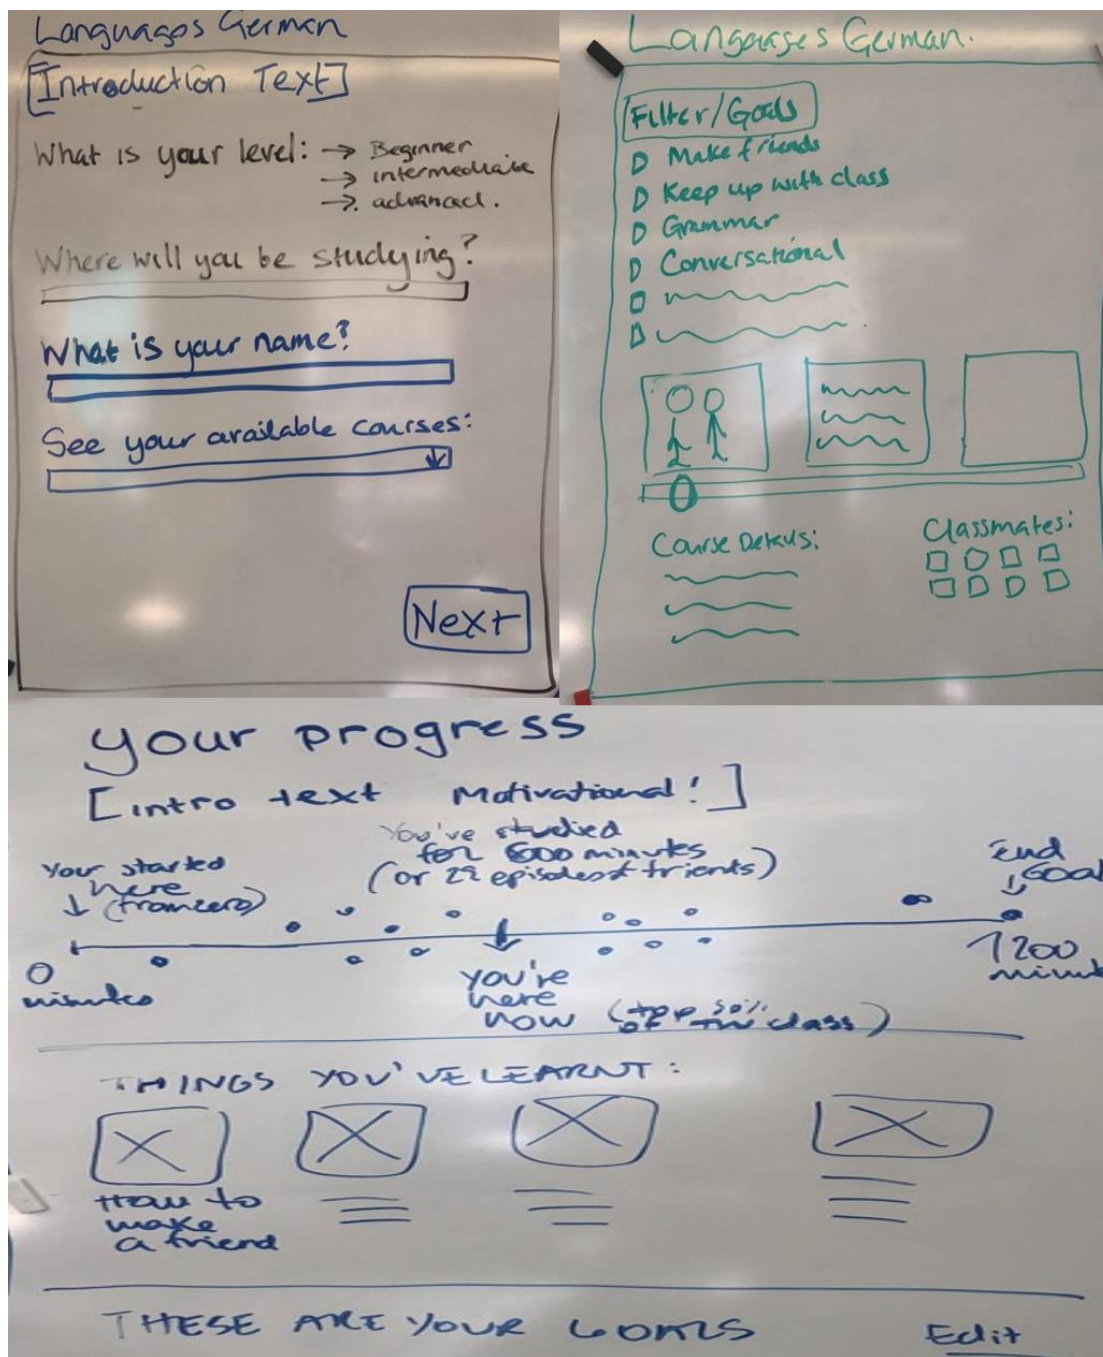 Languages German
[Introduction Text]
What is your level: → Beginner
→ intermediate
→ advanced.
Where will you be studying?
What is your name?
See your available courses:
Next
Languages German.
Filter/Goals
Make friends
Keep up with class
Grammar
Conversational
Course Details:
Classmates:
your progress
[intro text Motivational!]
You've studied
for 600 minutes
(or 29 episodes of friends)
Your started
here
(from zero)
End
Goal
0
minutes
you're
here
now (top 50%
of the class)
1200
minut
THINGS YOU'VE LEARNT:
How to
make
a friend
THESE ARE YOUR GOALS
Edit